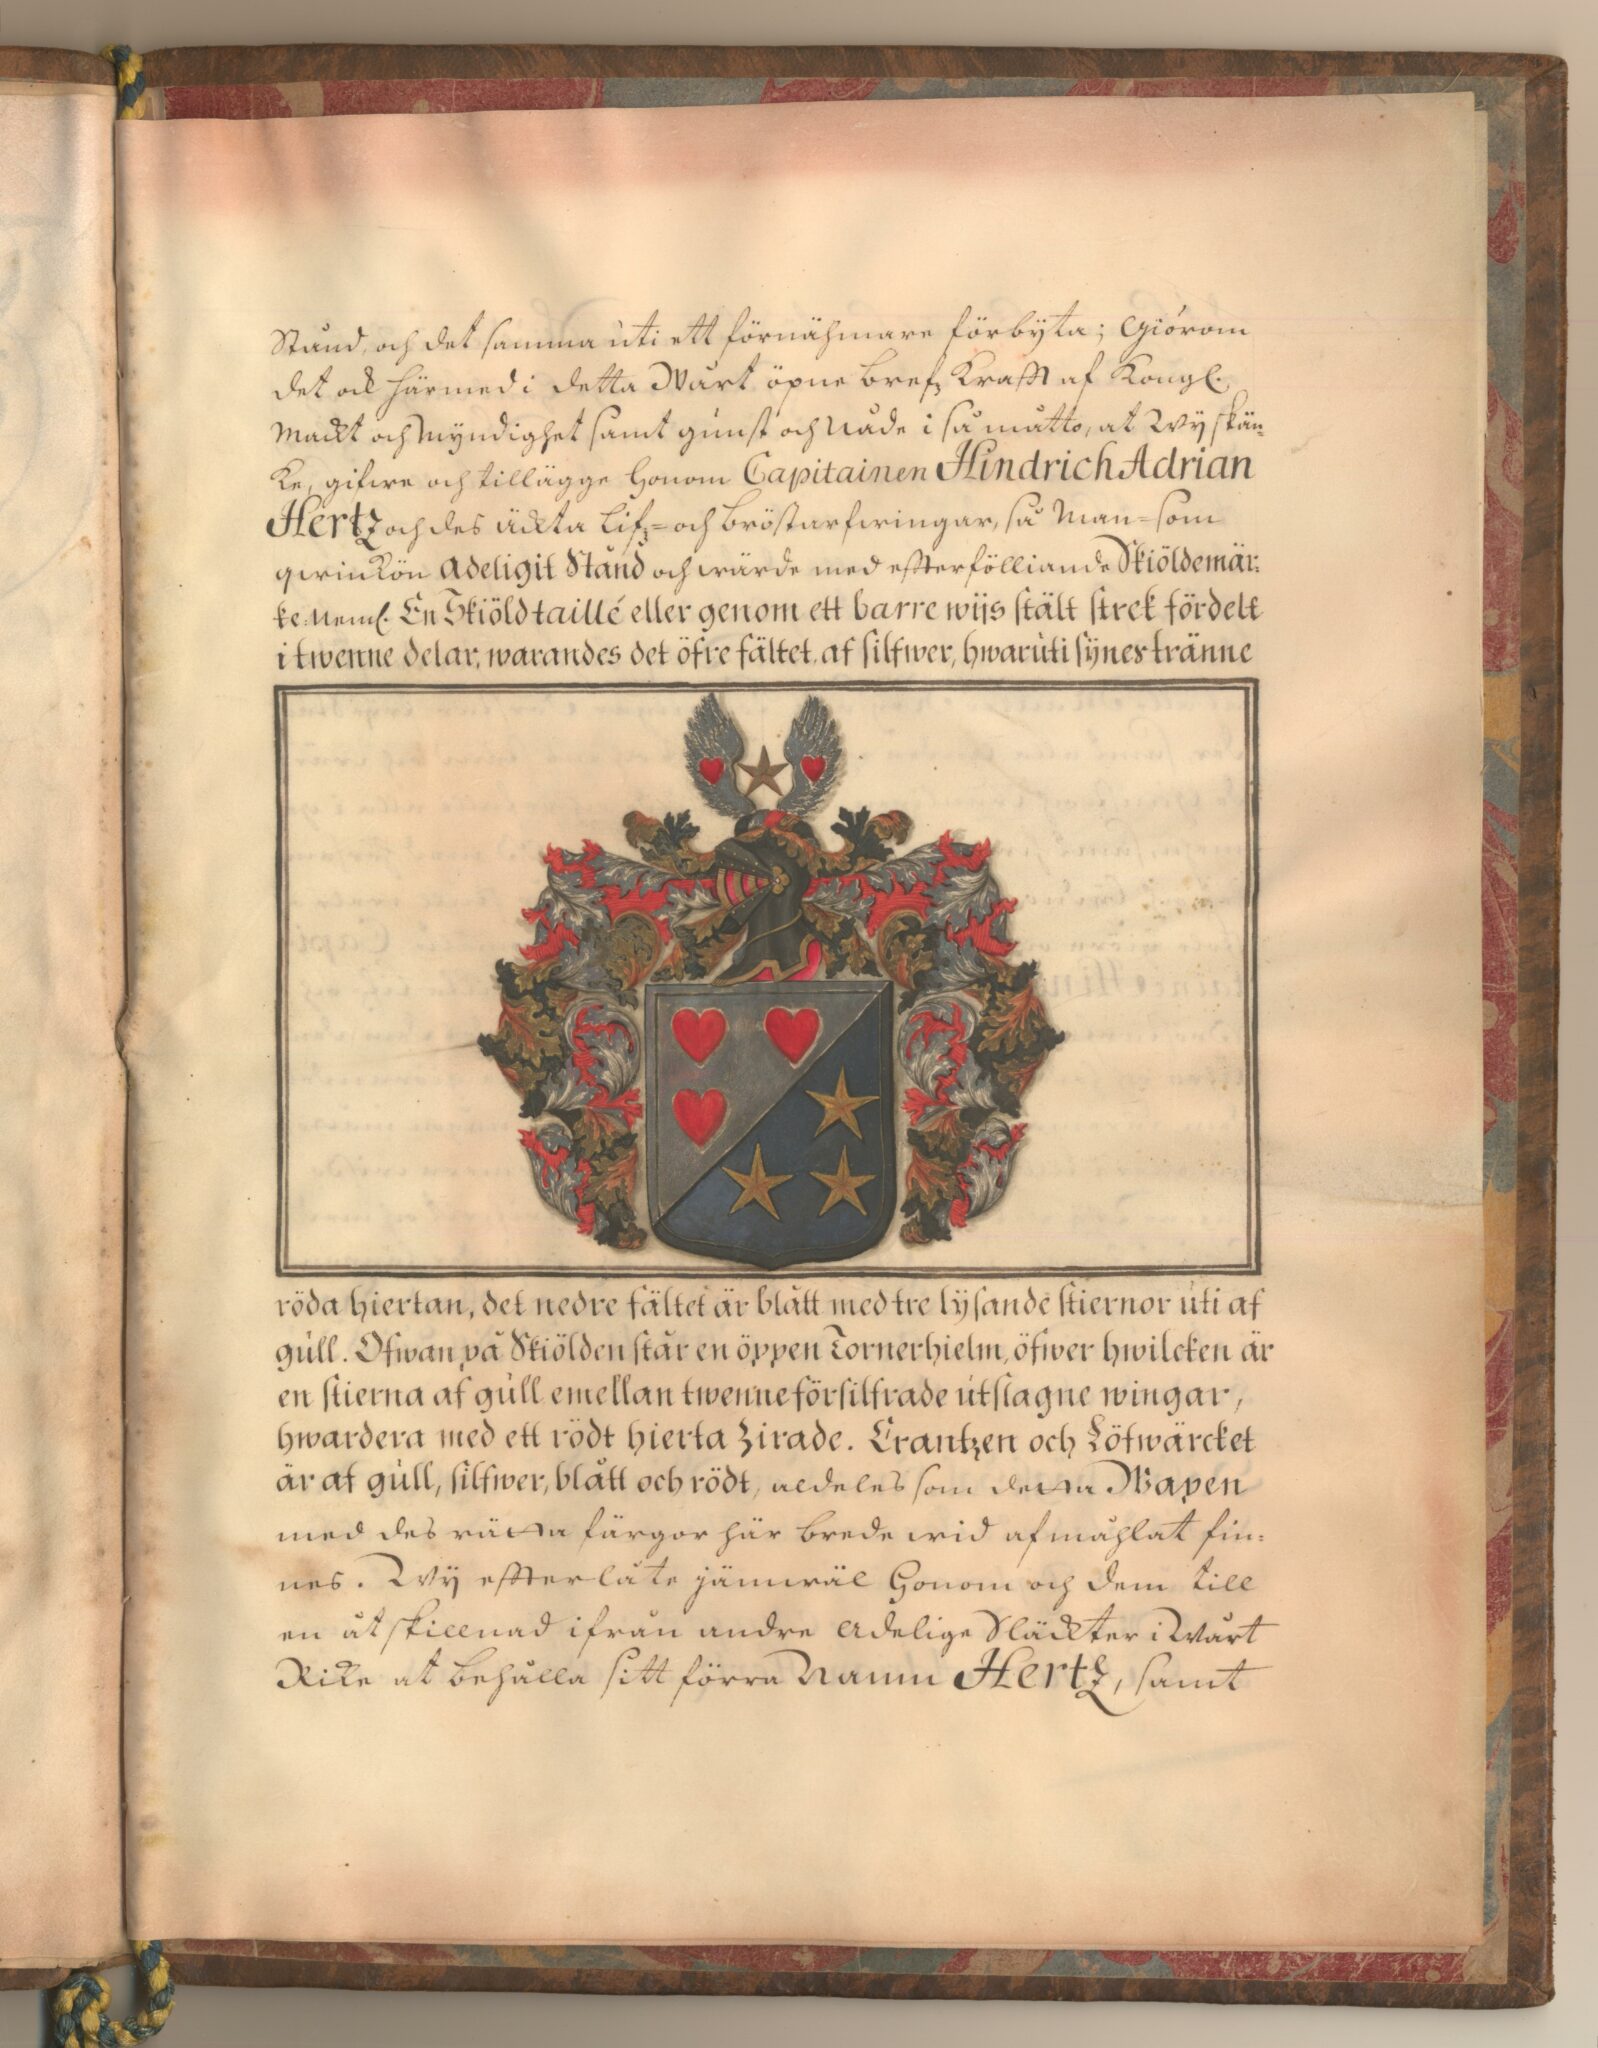 Stånd, och det samma uti ett förnähmare förbÿta; Giörom
det ock härmed i detta Wårt öpne bref, Krafft af Kongl.
Mackt och Mÿndighet samt gunst och Nåde i så måtto, at Wÿ skän-
ke, gifwe och tillägge honom Capitainen Hindrich Adrian
Hertz och des äckta lifz- och bröstarfwingar, så Man- som
qwinkön adeligit Stånd och wärde med effterfölliande Skiöldemär-
ke. Neml. En Skiöld taillé eller genom ett barre wijs stält strek fördelt
i twenne delar, warandes det öfre fältet af silfwer, hwaruti sÿnes tränne
röda hiertan, det nedre fältet är blått med tre lÿsande stiernor uti af
gull. Ofwan på Skiölden står en öppen Tornerhielm, öfwer hwilcken är
en stierna af gull emellan twenne försilfrade utslagne wingar,
hwardera med ett rödt hierta Zirade. Crantzen och Löfwärcket
är af gull, silfwer, blått och rödt, aldeles som detta Wapen
med des rätta färgor här brede wid afmåhlat fin-
nes. Wÿ effterlåte jämwäl honom och dem till
en åtskillnad ifrån andre Adelige Släckter i Wårt
Rike at behålla sitt förra Namn Hertz, samt